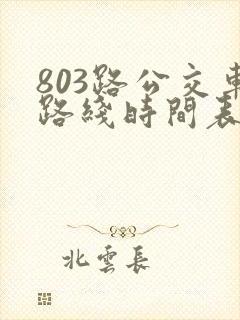 803路公交車
路綫時間表
北雲長